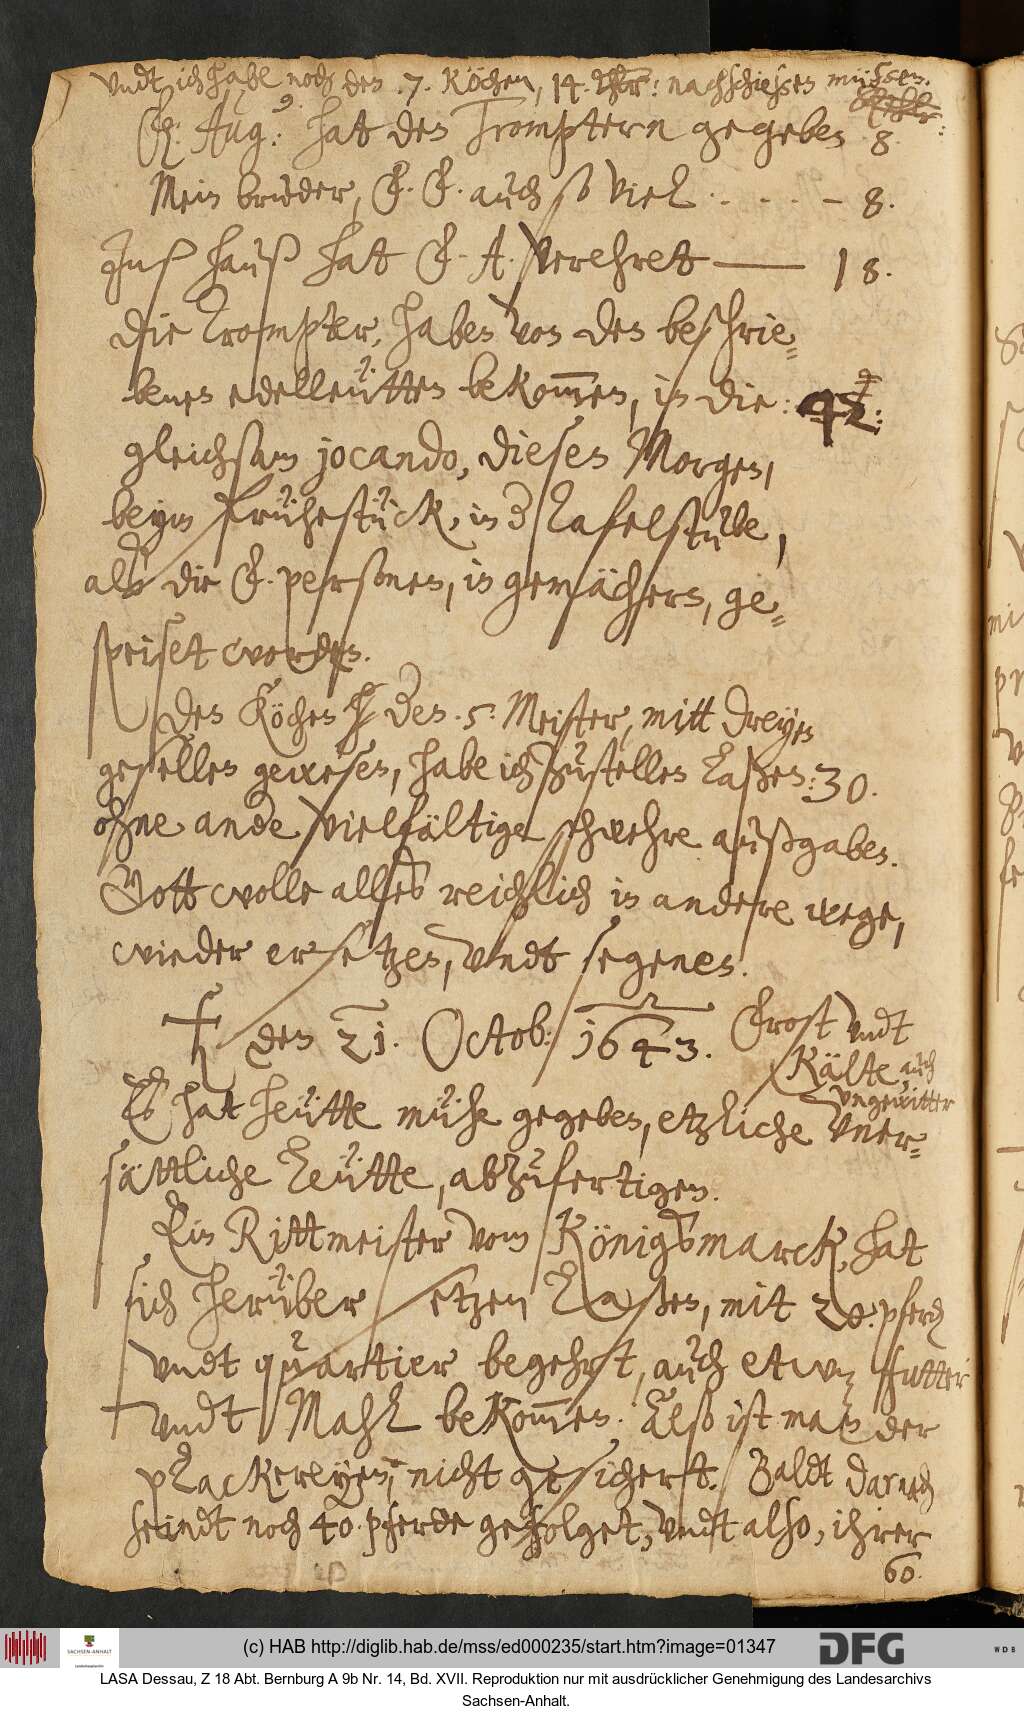 undt ich habe noch den .7. Köchen, 14 Thlr: nachschießen müßen.
F. Aug: hat den Tromptern gegeben 8.
Mein bruder, F. F. auch so viel . . . . – 8.
Inß hauß hat F. A. verehret —— 18.
Die Trompter, haben von den beschrie-
benen edelleütten bekommen, in die: 42:
gleichsam jocando, diesen Morgen,
beym Frühestück, in der Tafelstube,
alß die F. personen, in gemächern, ge-
speiset worden.
Den Köchen derer .5. Meister, mitt dreyen
gesellen gewesen, habe ich zustellen laßen: 30.
ohne andere vielfältige schwehre außgaben.
Gott wolle alles reichlich in andere wege,
wieder ersetzen, undt segenen.
den 21. Octob: 1643. Frost undt
Kälte, auch
ungewitter
Es hat heütte mühe gegeben, etzliche uner-
sättliche Leütte, abzufertigen.
Ein Rittmeister vom Königsmarck, hat
sich herüber setzen laßen, mit 20. pferden
undt quartier begehrt, auch etwaß futter
undt Mahl bekommen. Also ist man der
plackereyen, nicht gesichert. Baldt darnach
seindt noch 40. pferde gefolget, undt also, ihrer
60.
(c) HAB http://diglib.hab.de/mss/ed000235/start.htm?image=01347
SACHSEN-ANHALT
DFG
WDB
LASA Dessau, Z 18 Abt. Bernburg A 9b Nr. 14, Bd. XVII. Reproduktion nur mit ausdrücklicher Genehmigung des Landesarchivs
Sachsen-Anhalt.